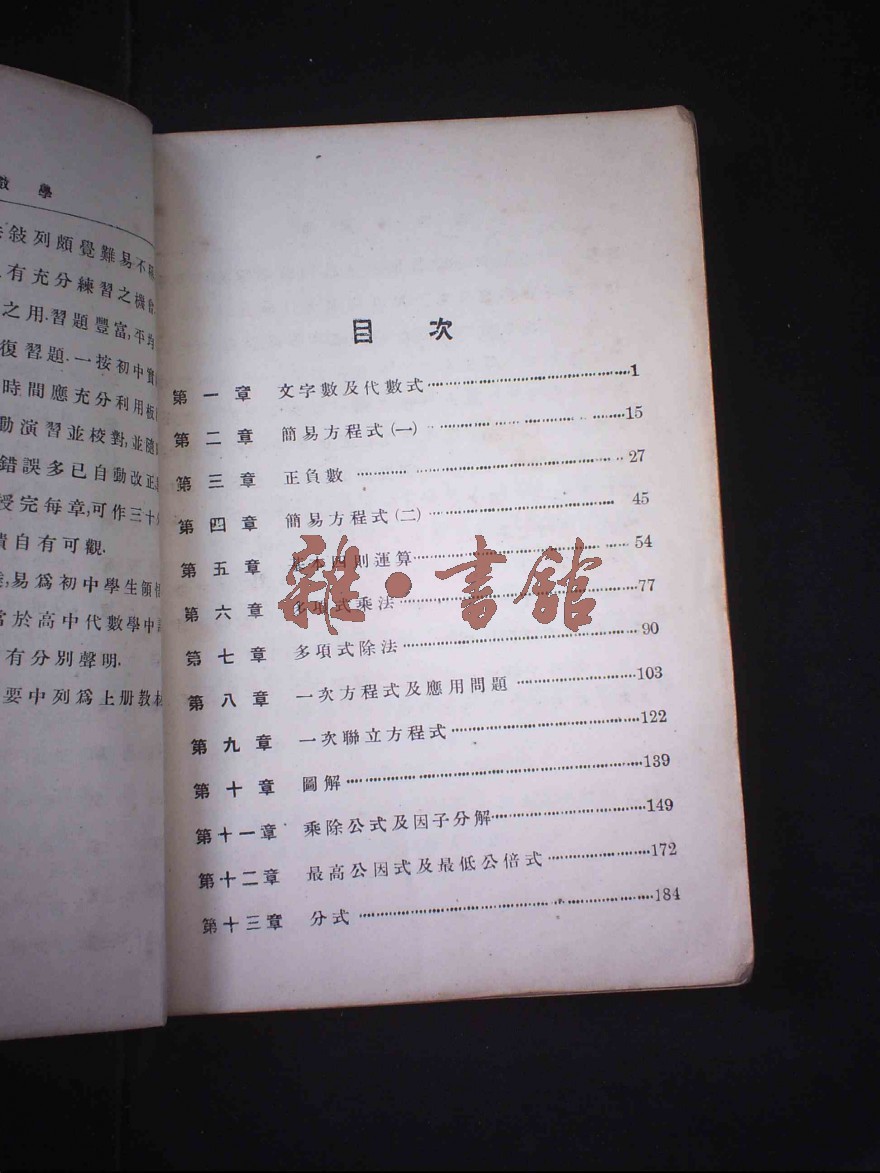 數學
敍列頗覺難易不
有充分練習之機會
之用.習題豐富,平均
復習題.一按初中實
時間應充分利用板
動演習並校對,並隨
錯誤多已自動改正
授完每章,可作三十
自有可觀.
易爲初中學生領
於高中代數學中
有分別聲明.
要中列爲上册教材
目次
第一章 文字數及代數式 1
第二章 簡易方程式(一) 15
第三章 正負數 27
第四章 簡易方程式(二) 45
第五章 基本四則運算 54
第六章 多項式乘法 77
第七章 多項式除法 90
第八章 一次方程式及應用問題 103
第九章 一次聯立方程式 122
第十章 圖解 139
第十一章 乘除公式及因子分解 149
第十二章 最高公因式及最低公倍式 172
第十三章 分式 184
雜·書館